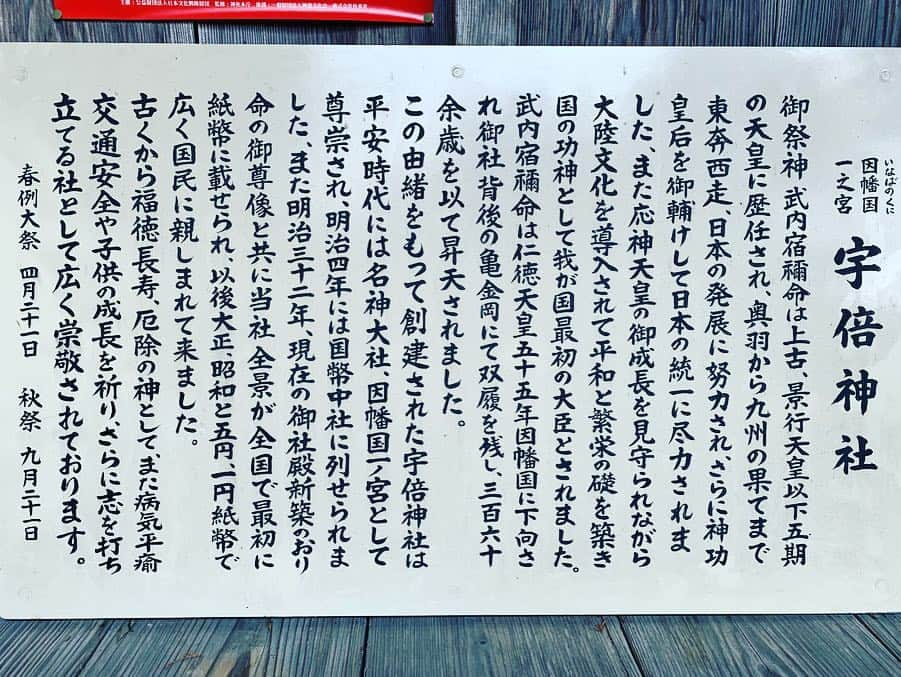 主催:公益財団法人日本文化興隆財団
因幡国
いなばのくに
一之宮
宇倍神社
御祭神 武内宿禰命は上古、景行天皇以下五期
の天皇に歴任され、奥羽から九州の果てまで
東奔西走、日本の発展に努力され、さらに神功
皇后を御輔けして日本の統一に尽力されま
した、また応神天皇の御成長を見守られながら
大陸文化を導入されて平和と繁栄の礎を築き
国の功神として我が国最初の大臣とされました。
武内宿禰命は仁徳天皇五十五年因幡国に下向さ
れ御社背後の亀金岡にて双履を残し、三百六十
余歳を以て昇天されました。
この由緒をもって創建された宇倍神社は
平安時代には名神大社、因幡国一ノ宮として
尊崇され、明治四年には国幣中社に列せられま
した、また明治三十二年、現在の御社殿新築のおり
命の御尊像と共に当社全景が全国で最初に
紙幣に載せられ、以後大正、昭和と五円、一円紙幣で
広く国民に親しまれて来ました。
古くから福徳長寿、厄除の神として、また病気平癒
交通安全や子供の成長を祈り、さらに志を打ち
立てる社として広く崇敬されております。
春例大祭 四月二十一日 秋祭 九月二十一日